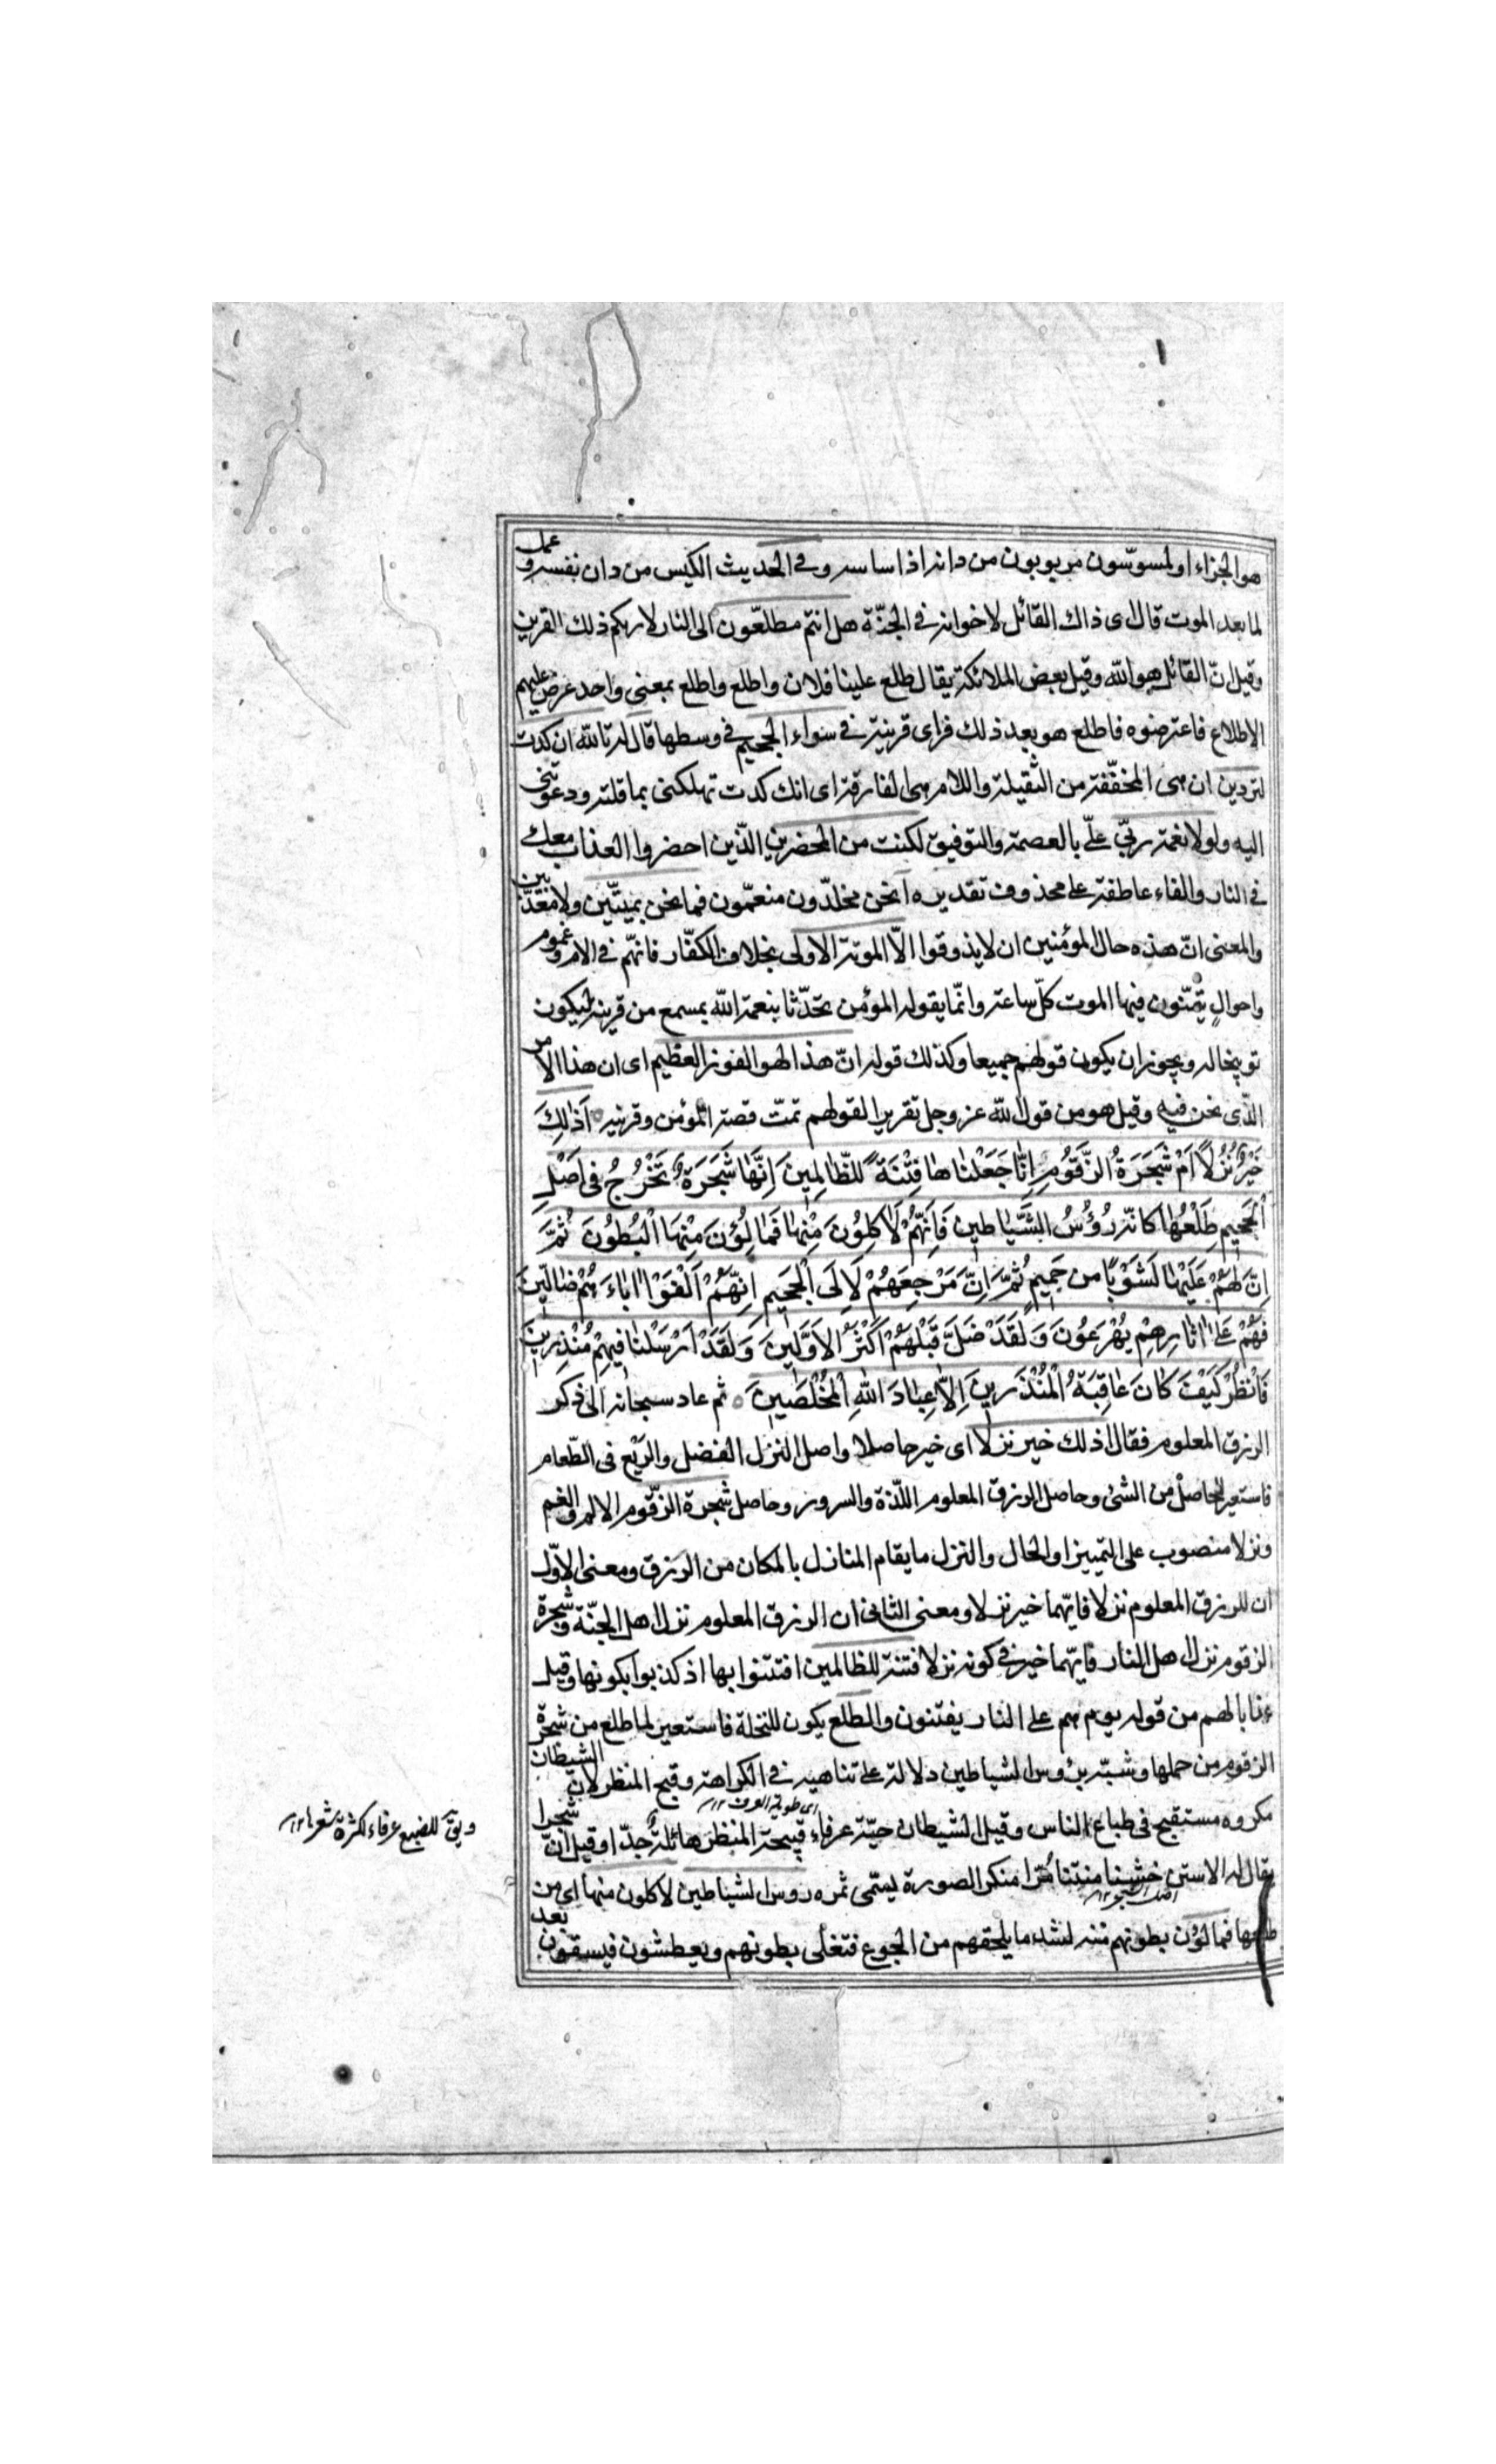 هو الجزاء او لمسوسون مربوبون من دانه اذا ساسه و في الحديث الكيس من دان نفسه و عمل
لما بعد الموت قال اى ذاك القائل لاخوانه في الجنّة هل انتم مطلعّون الى النار لاريكم ذلك القرين
وقيل انّ القائل هو الله وقيل بعض الملائكة يقال طلع علينا فلان واطلع واطلع بمعنى واحد عرض عليهم
الاطلاع فاعترضوه فاطلع هو بعد ذلك فراى قرينه في سواء الجحيم في وسطها قال له تالله ان كدت
لتردين ان هى المخفّفة من الثقيلة واللام هى الفارقة اى انك كدت تهلكنى بما قلته ودعوتنى
اليه ولولا نعمة ربّي علّي بالعصمة والتوفيق لكنت من المحضرين الّذين احضروا العذاب معك
في النار والفاء عاطفة على محذوف تقديره أنحن مخلدّون منعمّون فما نحن بميتّين ولا معذّبين
والمعنى انّ هذه حال المؤمنين ان لا يذوقوا الّا الموتة الاولى بخلاف الكفّار فانهّم في الام وغموم
واحوالٍ يتمنّون فيها الموت كلّ ساعة وانّما يقوله المؤمن تحدّثا بنعمة الله بمسمع من قرينه ليكون
توبيخا له ويجوز ان يكون قولهم جميعا وكذلك قوله انّ هذا لهو الفوز العظيم اى ان هذا الامر
الّذى نحن فيه وقيل هو من قول الله عز وجل تقريرا لقولهم تمتّ قصة المؤمن وقرينه اَذٰلِكَ
خَيْرٌ نُزُلًا اَمْ شَجَرَةُ الزَّقُّومِ اِنّٰا جَعَلْنٰاهٰا فِتْنَةً لِلظّٰالِمِينَ اِنَّهٰا شَجَرَةٌ تَخْرُجُ فى اَصْلِ
الْجَحِيمِ طَلْعُهٰا كَانّه رُؤُسُ الشَّيٰاطين فَاِنَّهُمْ لَاٰكِلُونَ مِنْهٰا فَمٰالِئُونَ مِنْهَا الْبُطُونَ ثُمَّ
اِنَّ لَهُمْ عَلَيْهٰا لَشَوْبًا من حَمِيمٍ ثُمَّ اِنَّ مَرْجِعَهُمْ لَاِلَى الْجَحِيمِ اِنَّهُمْ اَلْفَوْا اٰبٰاءَهُمْ ضٰالّينَ
فَهُمْ عَلىٰ اٰثٰارِهِمْ يُهْرَعُونَ وَلَقَدْ ضَلَّ قَبْلَهُمْ اَكْثَرُ الاَوَّلينَ وَلَقَدْ اَرْسَلْنٰا فيهِمْ مُنْذِرينَ
فَانْظُرْ كَيْفَ كٰانَ عٰاقِبَةُ الْمُنْذَرينَ اِلّٰا عِبٰادَ اللهِ الْمُخْلَصينَ ثم عاد سبحانه الى ذكر
الرزق المعلوم فقال اذلك خير نزلا اى خير حاصلا واصل النزل الفضل والرّيع فى الطّعام
فاستعير للحاصل من الشئ وحاصل الرزق المعلوم اللّذة والسرور وحاصل شجرة الزقّوم الالم والغم
ونزلا منصوب على التمييز او الحال والنزل ما يقام للنازل بالمكان من الرزق ومعنى الاوّل
ان للرزق المعلوم نزلا فايهّما خير نزلا ومعنى الثانى ان الرزق المعلوم نزل اهل الجنّة وشجرة
الزقوم نزل اهل النار فايهّما خير في كونه نزلا فتنة للظالمين افتتنوا بها اذ كذبوا بكونها وقيل
عذابا لهم من قوله يوم هم على النار يفتنون والطلع يكون للنخلة فاستعير لما طلع من شجرة
الزقوم من حملها وشبّه برؤس الشياطين دلالة على تناهيه في الكراهة وقبح المنظر لان الشيطان
مكروه مستقبح فى طباع الناس وقيل الشيطان حيّة عرفاء قبيحة المنظر هائلةٌ جدّا وقيل انّ شجرا
اى طويلة العرف ١٢
ويقَ للضبع عرفاء لكثرة شعرها ١٢
يقال له الاستن خشنا منتنا مُرّا منكر الصورة يسمّى ثمره رؤس الشياطين لآكلون منها اى من
طلعها فمالؤن بطونهم منه لشدة ما يلحقهم من الجوع فتغلى بطونهم ويعطشون فيسقون بعد